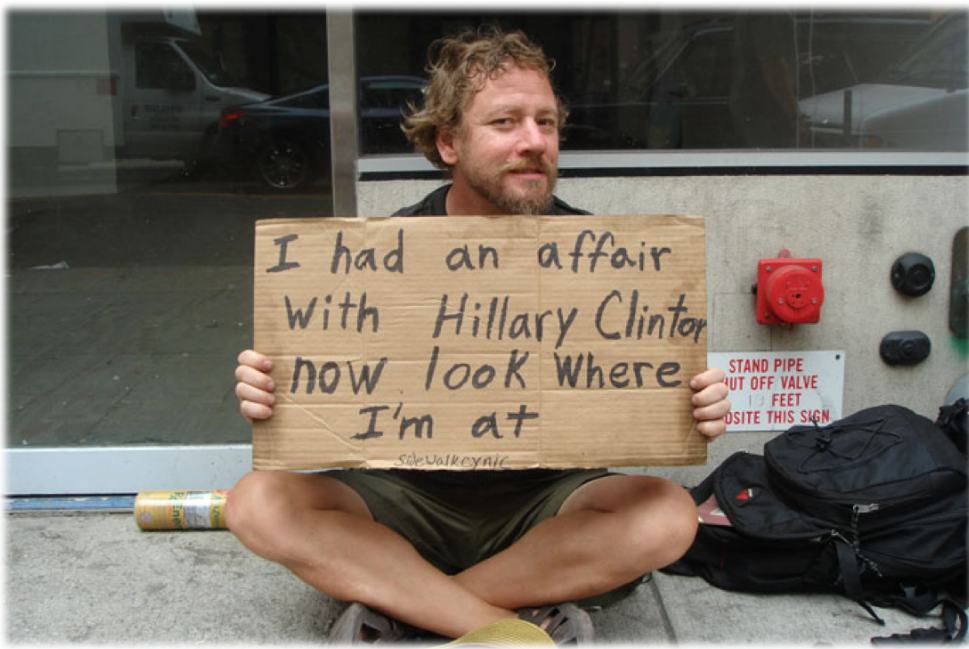 I had an affair
with Hillary Clinton
now look where
I'm at
sidewalkcynic
STAND PIPE
UT OFF VALVE
10 FEET
OSITE THIS SIGN